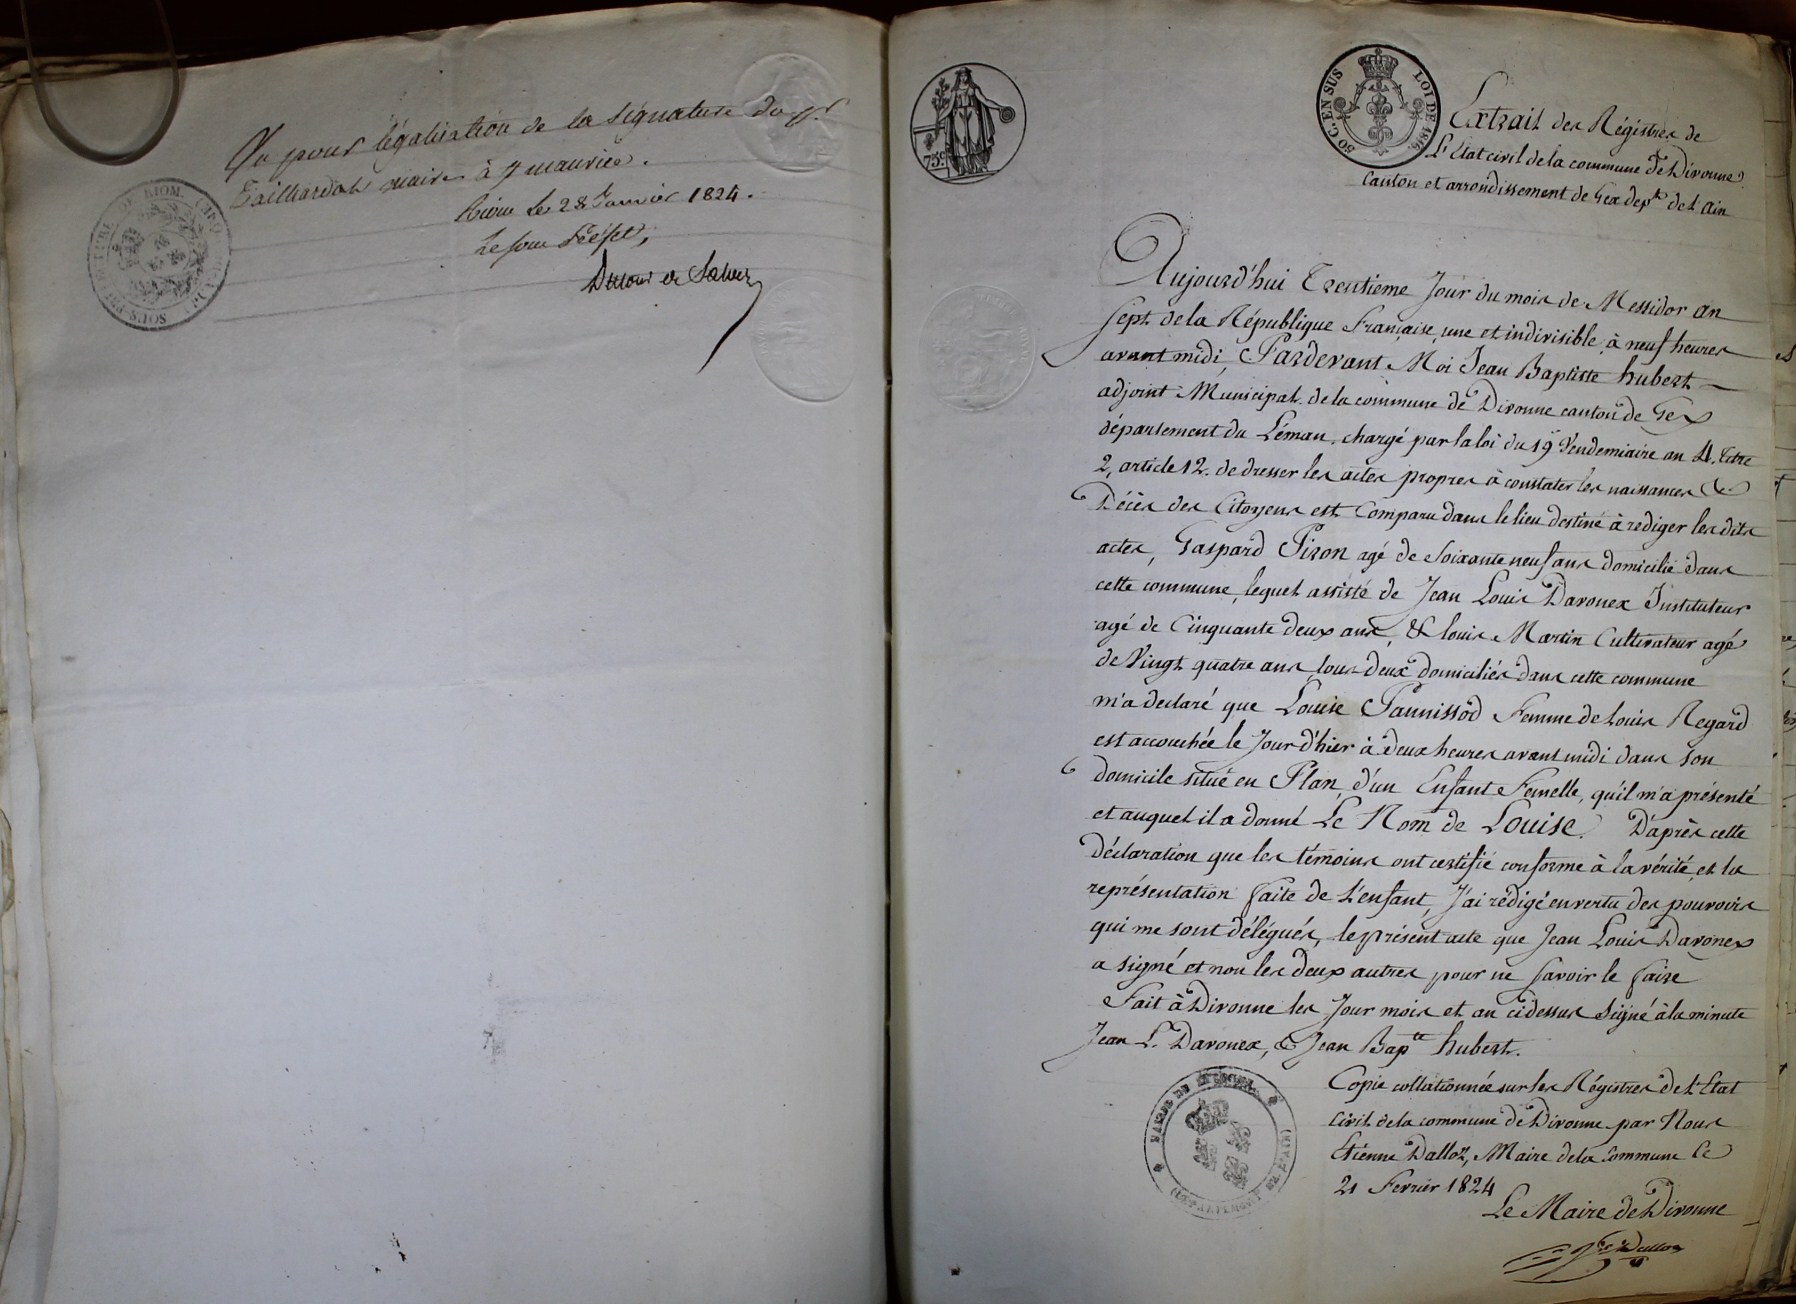 Vu pour légalisation de la signature du Sr
Tailhardat maire à St maurice.
Riom le 28 Janvier 1824.
Le sous Préfet,
RIOM.
75c
50 C. EN SUS
LOI DE 1816.
Extrait des Régistres de
L'Etat civil de la commune de Divonne
Canton et arrondissement de Gex dept. de l'Ain
Aujourd'hui Trentieme Jour du mois de Messidor an
Sept de la République Française, une et indivisible à neuf heures
avant midi, Pardevant Moi Jean Baptiste hubert
adjoint Municipal de la commune de Divonne canton de Gex
département du Léman, chargé par la loi du 19 Vendemiaire an 4. titre
2, article 12. de dresser les actes propres à constater les naissances &
Décès des Citoyens est Comparu dans le lieu destiné à rediger les dits
actes, Gaspard Piron agé de Soixante neuf ans domicilié dans
cette commune, lequel assisté de Jean Louis Davonex Instituteur
agé de Cinquante deux ans, & louis Martin Cultivateur agé
de Vingt quatre ans tous deux domiciliés dans cette commune
m'a declaré que Louise Pannissod Femme de Louis Regard
est accouchée le Jour d'hier à deux heures avant midi dans son
domicile situé en Plan, d'un Enfant Femelle, qu'il m'a présenté
et auquel il a donné Le Nom de Louise. D'après cette
déclaration que les témoins ont certifié conforme à la vérité, et la
représentation faite de l'enfant, J'ai rédigé en vertu des pouvoirs
qui me sont délégués, le présent acte que Jean Louis Davonex
a signé et non les deux autres pour ne savoir le faire
Fait à Divonne les Jour mois et an cidessus Signé à la minute
Jean L. Davonex, & Jean Bapte hubert.
Copie collationnée sur les Régistres de l'Etat
Civil de la commune de Divonne par Nous
Etienne Dalloz, Maire de la Commune le
21 Fevrier 1824
Le Maire de Divonne
Dalloz